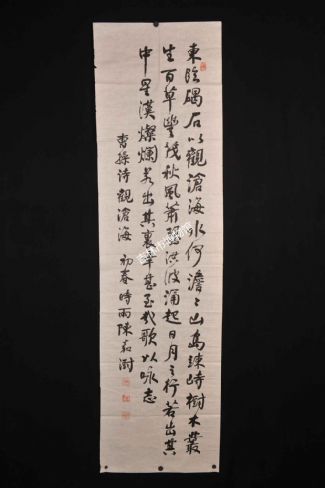 東臨碣石以觀滄海水何澹〻山島竦峙樹木叢
生百草豐茂秋風蕭瑟洪波湧起日月之行若出其
中星漢燦爛若出其裏幸甚至哉歌以詠志
曹操詩觀滄海 初春時雨陳茹澍